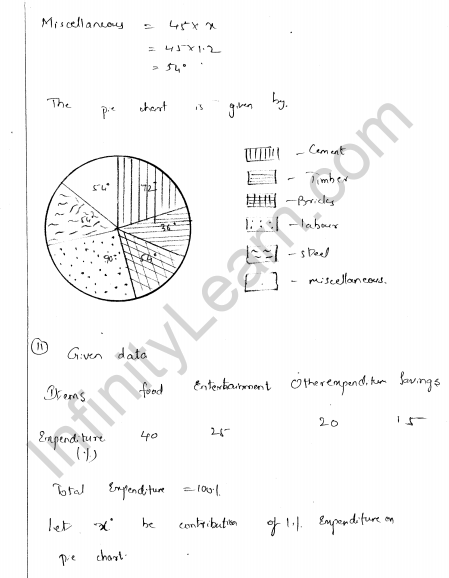 Miscellaneous = 45 × x
= 45 × 1.2
= 54°
The pie chart is given by.
54° 72°
36°
54°
90°
54°
- Cement
- Timber
- Bricks
- labour
- steel
- miscellaneous.
11 Given data
Items food Entertainment Other expenditure Savings
Expenditure 40 25 20 15
(%)
Total Expenditure = 100%
Let x° be contribution of 1% Expenditure on
pie chart.
InfinityLearn.com